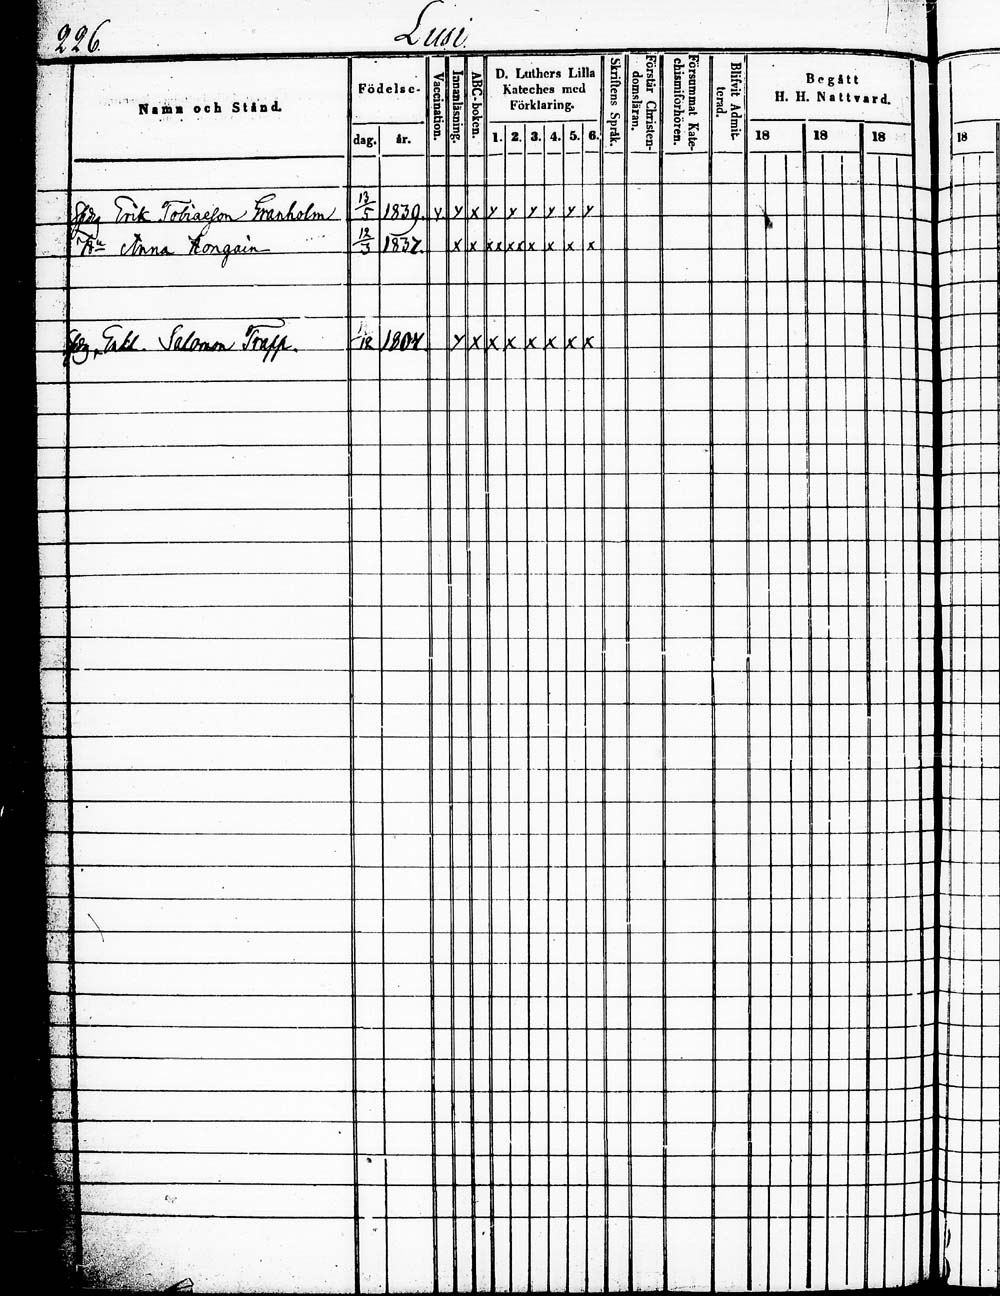 226.
Lusi.
Namn och Stånd.
Födelse-
dag. år.
Vaccination.
Innanläsning.
ABC-boken.
D. Luthers Lilla
Kateches med
Förklaring.
1. 2. 3. 4. 5. 6.
Skriftens Språk.
Förstår Christen-
domsläran.
Försummat Kate-
chismiförhören.
Blifvit Admit-
terad.
Begått
H. H. Nattvard.
18 18 18
18
Erik Tobiaeson Granholm 13/5 1839. y y x y y y y y y
Anna Kongain 12/3 1837. x x x x x x x x x x
Enkl. Salomon Trapp. /12 1804 y x x x x x x x